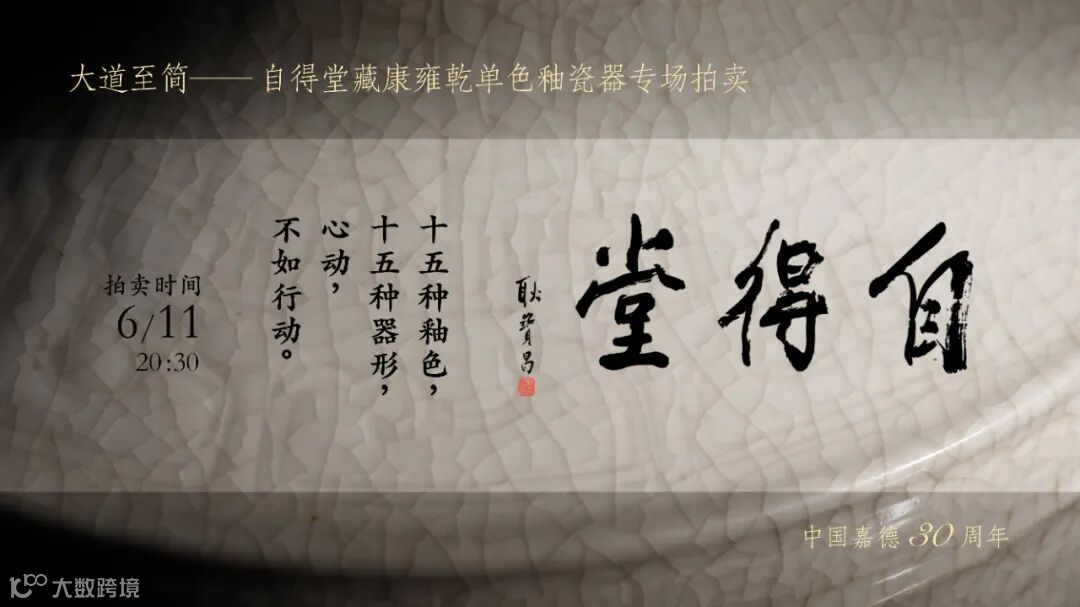 大道至简——自得堂藏康雍乾单色釉瓷器专场拍卖
自得堂
耿寶昌
十五种釉色，
十五种器形，
心动，
不如行动。
拍卖时间
6/11
20:30
中国嘉德30周年
大数跨境